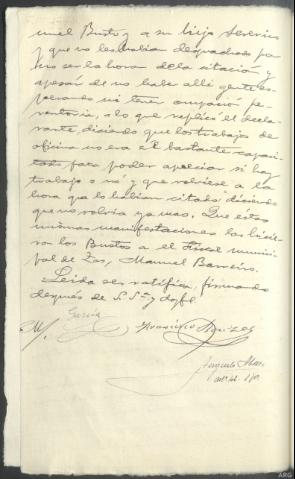 nuel Busto y a su hijo Severino
y que no les habian despachado por
no ser la hora de la citación y
apesár de no haber alli gente es-
perando ni tener ocupación pe-
rentoria, a lo que replicó el decla-
rante, diciendo que los trabajos de
oficina no era él bastante capaci-
tado para poder apreciar si hay
trabajo o no y que volviese a la
hora que lo habian citado diciendo
que no volvia ya mas. Que estas
mismas manifestaciones las hicie-
ron los Bustos a el Fiscal munici-
pal de Zas, Manuel Barreiro.
Leida se ratifica, firmando
después de S. Sª y doy fe
García
M. Francisco